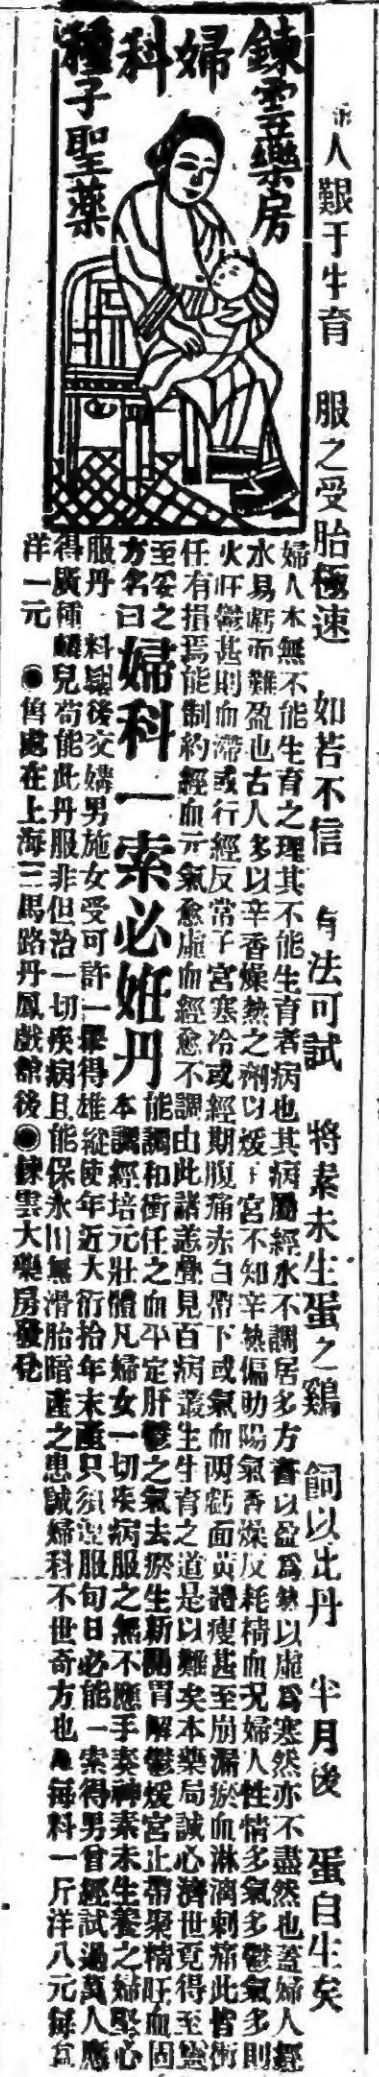 婦人艱于生育　服之受胎極速　如若不信　有法可試　將素未生蛋之鷄　飼以此丹　半月後　蛋自生矣
鍊雲藥房
婦科
種子聖藥
婦人本無不能生育之理其不能生育者病也其病屬經水不調居多方書以盈爲熱以虛爲寒然亦不盡然也蓋婦人經
水易虧而難盈也古人多以辛香燥熱之劑以煖子宮不知辛熱偏助陽氣香燥反耗精血况婦人性情多氣多鬱氣多則
火肝鬱甚則血滯或行經反常子宮寒冷或經期腹痛赤白帶下或氣血兩虧面黃體瘦甚至崩漏瘀血淋漓刺痛此皆衝
任有損焉能制約經血元氣愈虛血經愈不調由此諸恙疊見百病叢生生育之道是以難矣本藥局誠心濟世覓得至靈
至妥之
方名曰
婦科一索必姙丹
能調和衝任之血平定肝鬱之氣去瘀生新開胃解鬱煖宮止帶聚精旺血固
本調經培元壯體凡婦女一切疾病服之無不應手奏神素未生養之婦堅心
服丹一料鬆後交媾男施女受可許一舉得雄縱使年近大衍拾年未產只須湼服旬日必能一索得男曾經試過萬人應
得廣種麟兒苟能此丹服非但治一切疾病且能保永川無滑胎暗產之患誠婦科不世奇方也每料一斤洋八元每盒
洋一元　◉售處在上海三馬路丹鳳戲館後◉鍊雲大藥房發兌